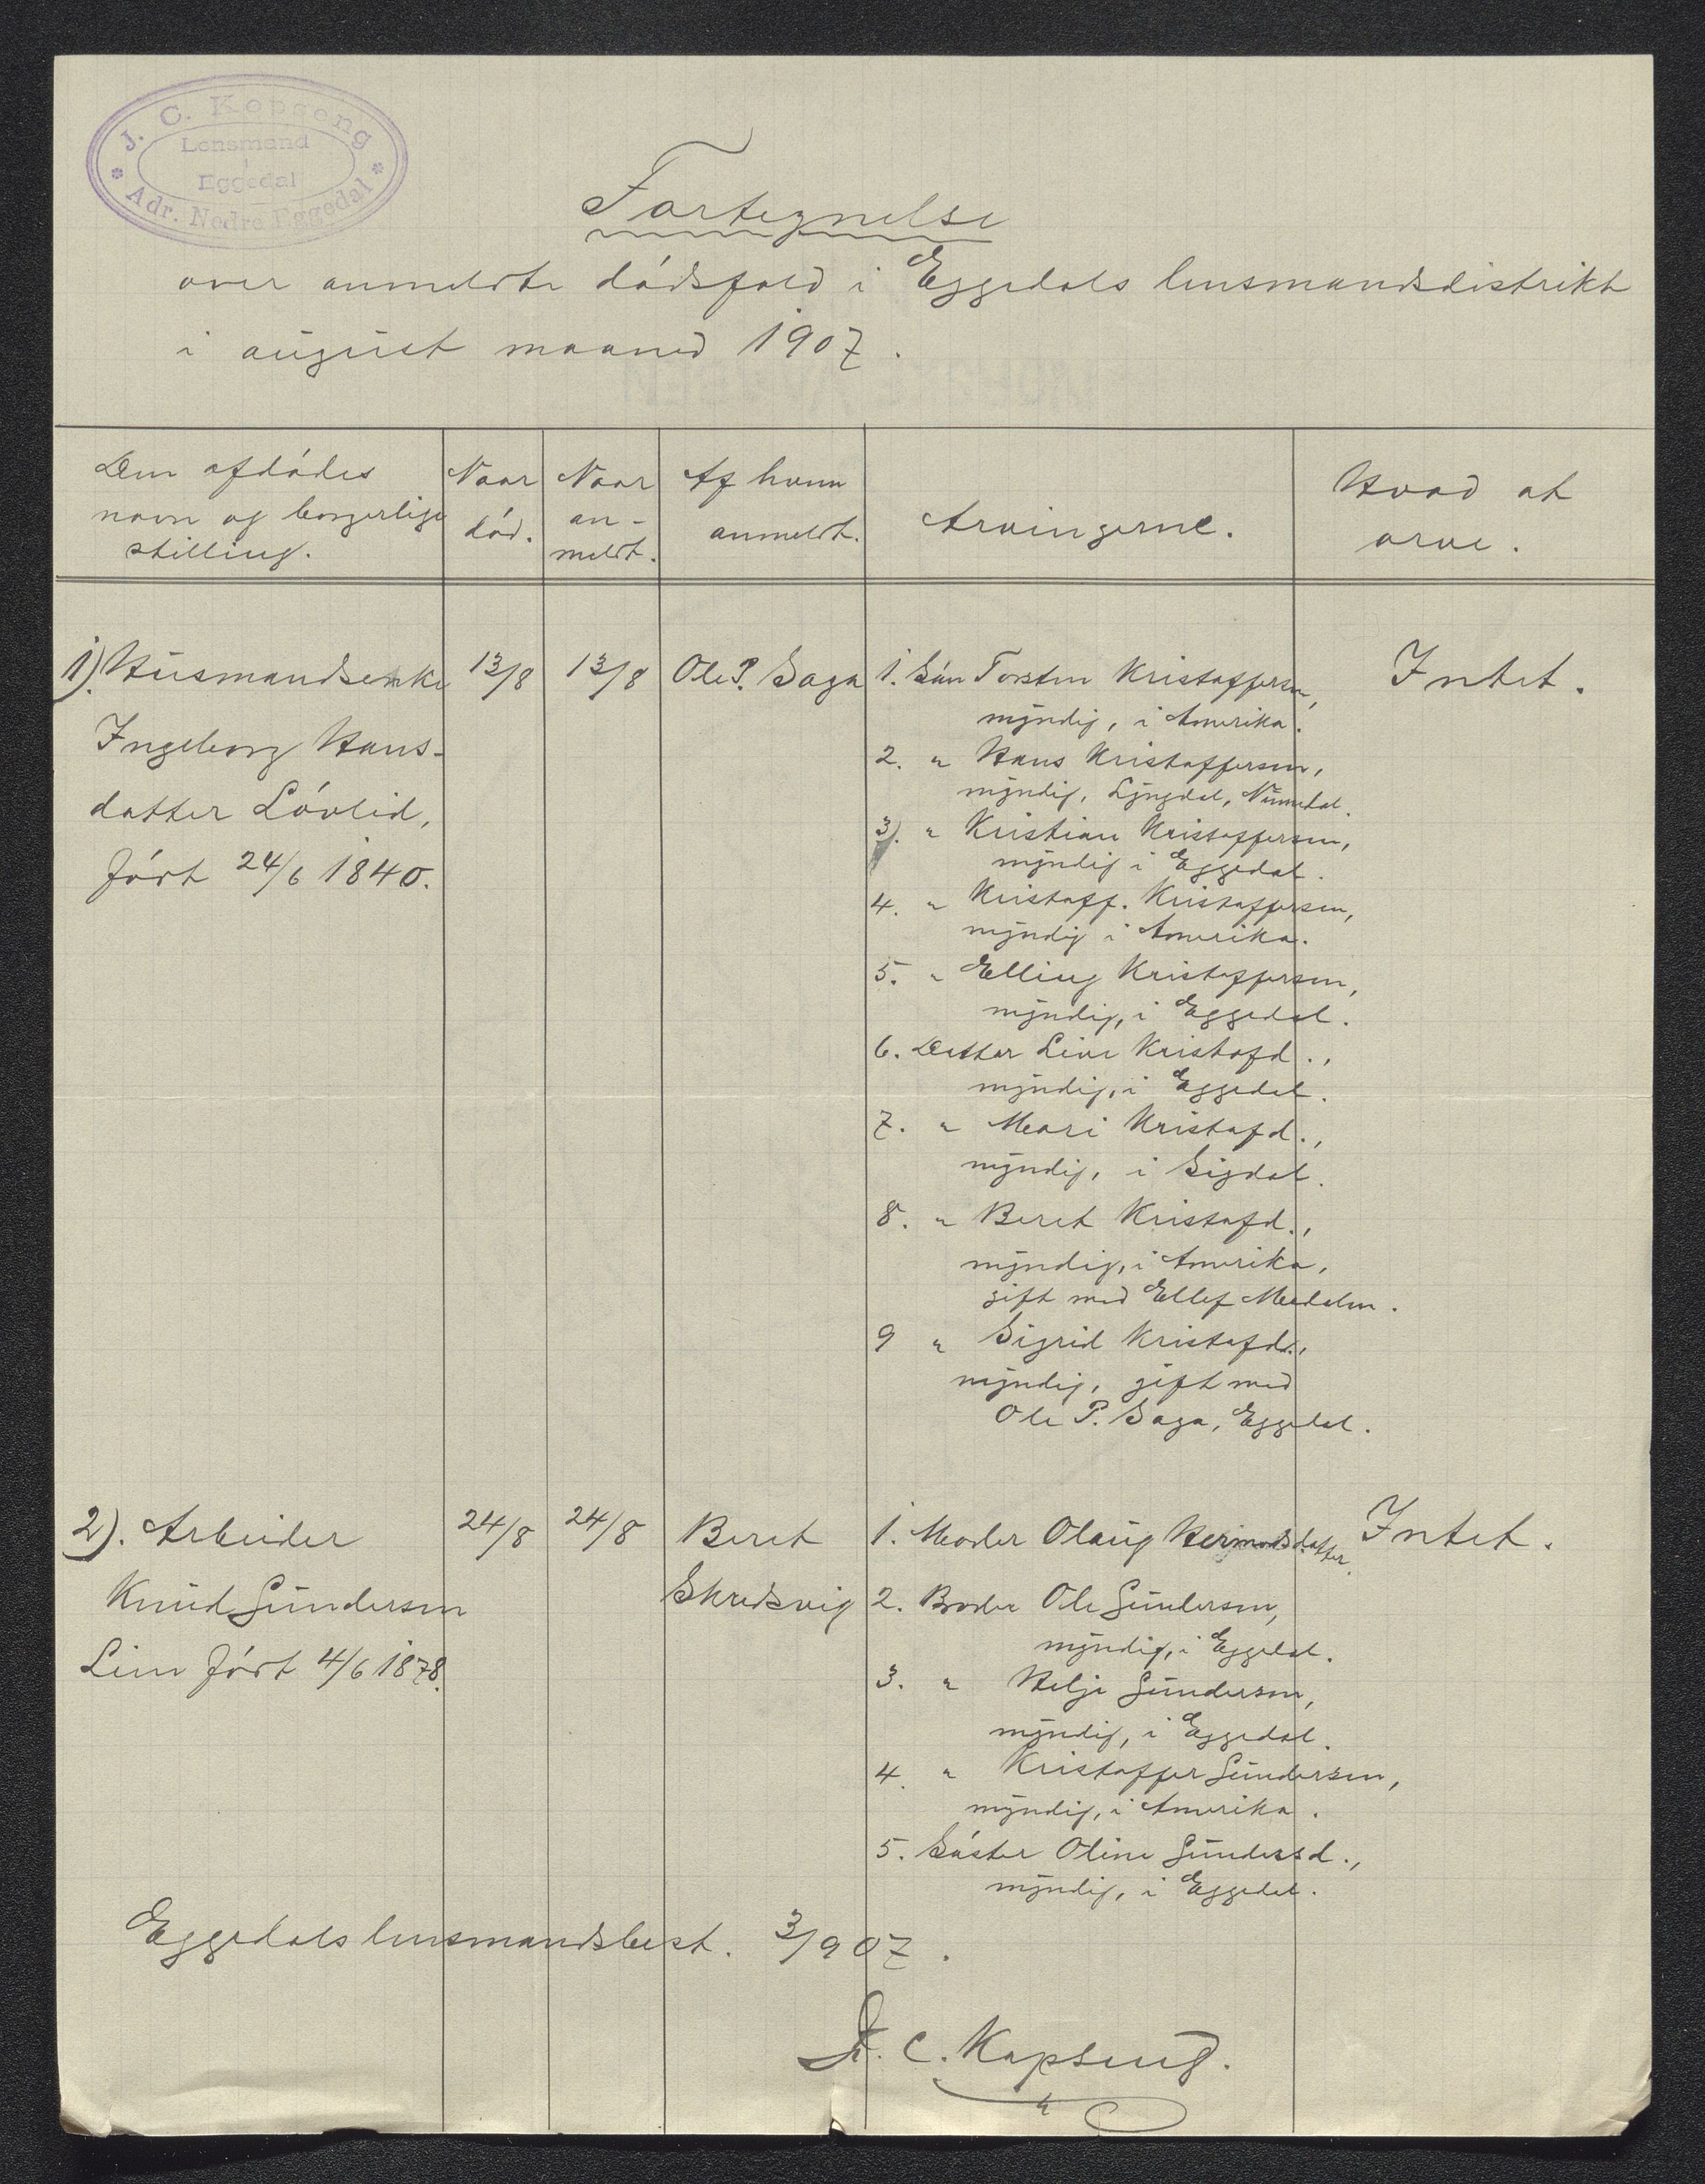 J. C. Kopseng
Lensmand
i
Eggedal
Adr. Nedre Eggedal
Fortegnelse
over anmeldte dödsfald i Eggedals lensmandsdistrikt
i august maaned 1907.
Den afdödes
navn og borgerlige
stilling.
Naar
död.
Naar
an-
meldt.
Af hvem
anmeldt.
Arvingerne.
Hvad at
arve.
1). Husmandsenke
Ingeborg Hans-
datter Lövlid,
född 24/6 1840.
13/8
13/8
Ole P. Saga
1. Sön Torsten Kristoffersen,
myndig, i Amerika.
2. " Hans Kristoffersen,
myndig, Lyngdal, Numedal.
3). " Kristian Kristoffersen,
myndig i Eggedal.
4. " Kristoff. Kristoffersen,
myndig i Amerika.
5. " Elling Kristoffersen,
myndig, i Eggedal.
6. Datter Live Kristofd.,
myndig, i Eggedal.
7. " Mari Kristofd.,
myndig, i Sigdal.
8. " Beret Kristofd.,
myndig, i Amerika,
gift med Ellef Medalen.
9 " Sigrid Kristofd.,
myndig, gift med
Ole P. Saga, Eggedal.
Intet.
2). Arbeider
Knud Gundersen
Lien födt 4/6 1878.
24/8
24/8
Beret
Skredsvig
1. Moder Olaug Hermodsdatter.
2. Broder Ole Gundersen,
myndig, i Eggedal.
3. " Helje Gundersen,
myndig, i Eggedal.
4. " Kristoffer Gundersen,
myndig, i Amerika.
5. Söster Oline Gundersd.,
myndig, i Eggedal.
Intet.
Eggedals lensmandsbest. 3/9 07.
J. C. Kopseng.